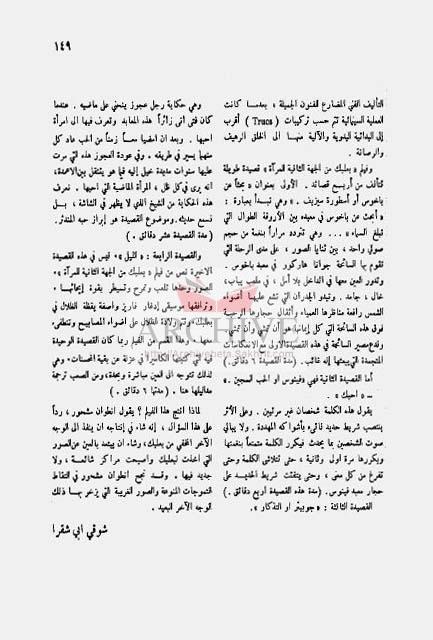 ١٤٩
التأليف الفني المضارع للفنون الجميلة ؛ بعدما كانت
العملية السينمائية تتم حسب تركيبات ( Trucs ) أقرب
إلى البدائية اليدوية والآلية منها الى الخلق الرهيف
والرصانة .
وفيلم « بعلبك من الجهة الثانية للمرآة » قصيدة طويلة
تتألف من أربع قصائد . الأولى بعنوان « بحثاً عن
باخوس أو أسطورة سيزيف . » وهي تبدأ بعبارة :
« أبحث عن باخوس في معبده بين الأروقة الطوال التي
تبلغ السماء » ... وهي تتردد مراراً بنغمة من حجم
صوتي واحد ، بين ثنايا الصور ، على مدى الرحلة التي
تقوم بها السائحة جوانا هاركور في معبد باخوس .
وتدور العين معها في الداخل بلا أمل ، في ملعب يباب،
خال ، جامد . وتبدو الجدران التي تشع عليها أضواء
الشمس رافعة مناظرها العمياء وأثقال حجارها الرحيبة
فوق هذه السائحة التي كل إيمانها هو أن تمشي وأن تمشي.
وقدم مصير السائحة في هذه القصيدة الأولى مع الانعكاسات
المتجمدة التي يبعثها إله غائب. (مدة القصيدة ٦ دقائق.)
أما القصيدة الثانية فهي « فينوس او الحب السجين . »
... « احبك » .
يقول هذه الكلمة شخصان غير مرئيين . وعلى الأثر
ينتصب شريط حديد نائي، بأشواكه المهددة . ولا يبالي
صوت الشخصين بما يحدث فيكرر الكلمة متمتماً بنغمتها
ويكررها مرة اولى وثانية ، حتى تتلاشى الكلمة وحتى
تفرغ من كل معنى ، وحتى يتفتت شريط الحديد على
حجار معبد فينوس. (مدة هذه القصيدة أربع دقائق.)
القصيدة الثالثة : « جوبيتر او التذكار » .
وهي حكاية رجل عجوز ينحني على ماضيه . عندما
كان فتى أتى زائراً هذه المعابد وتعرف فيها الى امرأة
احبها . وبعد ان امضيا معاً زمناً من الحب عاد كل
منهما يسير في طريقه . وفي عودة العجوز هذه التي مرت
عليها سنوات مديدة خيل إليه فيما هو يتنقل بين الاعمدة،
انه يرى في كل ظل ، المرأة الماضية التي احبها . نعرف
هذه الحكاية من الشيخ الذي لا يظهر في الشاشة ، بل
نسمع حديثه. وموضوع القصيدة هو إبراز حبه المندثر.
( مدة القصيدة عشر دقائق . )
والقصيدة الرابعة : « الليل » . ليس في هذه القصيدة
الاخيرة نص من فيلم « بعلبك من الجهة الثانية للمرآة ».
الصور وحدها تلعب وتمرح وتسيطر بقوة إيحائها .
وترافقها موسيقى إدغار فاريز واصفة يقظة الظلال في
بعلبك، وترى ولادة الظلال على اضواء المصابيح وتنطفىء
معها . وهذا القسم من الفيلم ربما كان القصيدة الوحيدة
فيه التي كتبتها الكاميرا في عزلة عن بقية المحسنات، وهي
لذلك تتوجه الى العين مباشرة وبحدة، ومن الصعب ترجمة
مداليلها هنا . ( مدتها ٦ دقائق )
لماذا أنتج هذا الفيلم ؟ يقول انطوان مشحور ، رداً
على هذا السؤال ، إنه شاء في إنتاجه ان ينفذ الى الوجه
الآخر المختفي من بعلبك، وشاء ان يبتعد بالعين عن الصور
التي اتخذت لبعلبك وأصبحت مراكز شائعة ، ولا
جديد فيها . وقد نجح أنطوان مشحور في التقاط
التموجات المنوعة والصور الغريبة التي يزخر بها ذلك
الوجه الآخر البعيد .
شوقي ابي شقرا
ARCHIVE